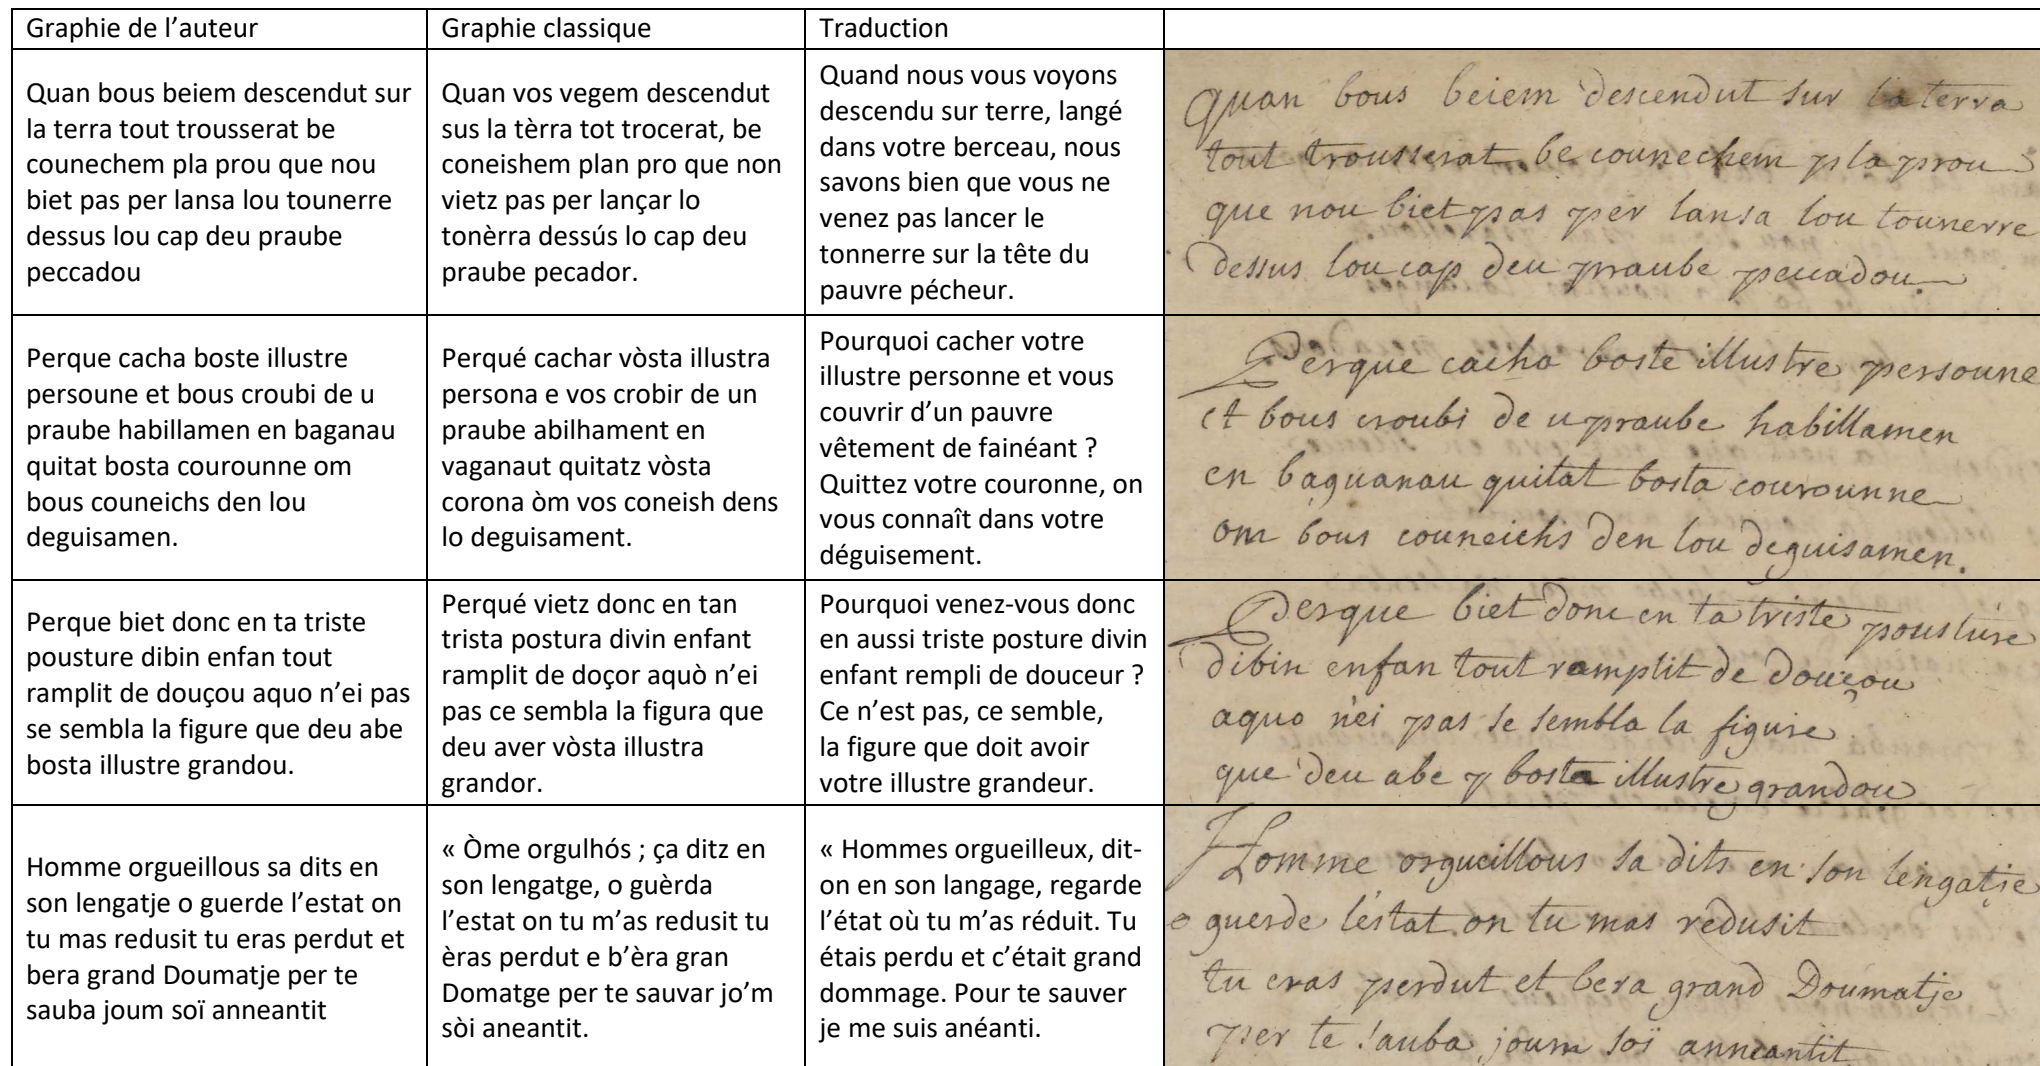 Graphie de l’auteur
Graphie classique
Traduction
Quan bous beiem descendut sur
la terra tout trousserat be
counechem pla prou que nou
biet pas per lansa lou tounerre
dessus lou cap deu praube
peccadou
Quan vos vegem descendut
sus la tèrra tot trocerat, be
coneishem plan pro que non
vietz pas per lançar lo
tonèrra dessús lo cap deu
praube pecador.
Quand nous vous voyons
descendu sur terre, langé
dans votre berceau, nous
savons bien que vous ne
venez pas lancer le
tonnerre sur la tête du
pauvre pécheur.
Quan bous beiem descendut sur la terra
tout trousserat be counechem pla prou
que nou biet pas per lansa lou tounerre
dessus lou cap deu praube peccadou.
Perque cacha boste illustre
persoune et bous croubi de u
praube habillamen en baganau
quitat bosta courounne om
bous couneichs den lou
deguisamen.
Perqué cachar vòsta illustra
persona e vos crobir de un
praube abilhament en
vaganaut quitatz vòsta
corona òm vos coneish dens
lo deguisament.
Pourquoi cacher votre
illustre personne et vous
couvrir d’un pauvre
vêtement de fainéant ?
Quittez votre couronne, on
vous connaît dans votre
déguisement.
Perque cacha boste illustre persoune
et bous croubi de u praube habillamen
en baguanau quitat bosta courounne
om bous couneichs den lou deguisamen.
Perque biet donc en ta triste
pousture dibin enfan tout
ramplit de douçou aquo n’ei pas
se sembla la figure que deu abe
bosta illustre grandou.
Perqué vietz donc en tan
trista postura divin enfant
ramplit de doçor aquò n’ei
pas ce sembla la figura que
deu aver vòsta illustra
grandor.
Pourquoi venez-vous donc
en aussi triste posture divin
enfant rempli de douceur ?
Ce n’est pas, ce semble,
la figure que doit avoir
votre illustre grandeur.
Perque biet donc en ta triste pousture
dibin enfan tout ramplit de douçou
aquo n'ei pas se sembla la figure
que deu abe y bosta illustre grandou
Homme orgueillous sa dits en
son lengatje o guerde l’estat on
tu mas redusit tu eras perdut et
bera grand Doumatje per te
sauba joum soï anneantit
« Òme orgulhós ; ça ditz en
son lengatge, o guèrda
l’estat on tu m’as redusit tu
èras perdut e b’èra gran
Domatge per te sauvar jo’m
sòi aneantit.
« Hommes orgueilleux, dit-
on en son langage, regarde
l’état où tu m’as réduit. Tu
étais perdu et c’était grand
dommage. Pour te sauver
je me suis anéanti.
Homme orgueillous sa dits en son lengatje
o guerde l'estat on tu mas redusit
tu eras perdut et bera grand Doumatje
per te sauba joum soï anneantit